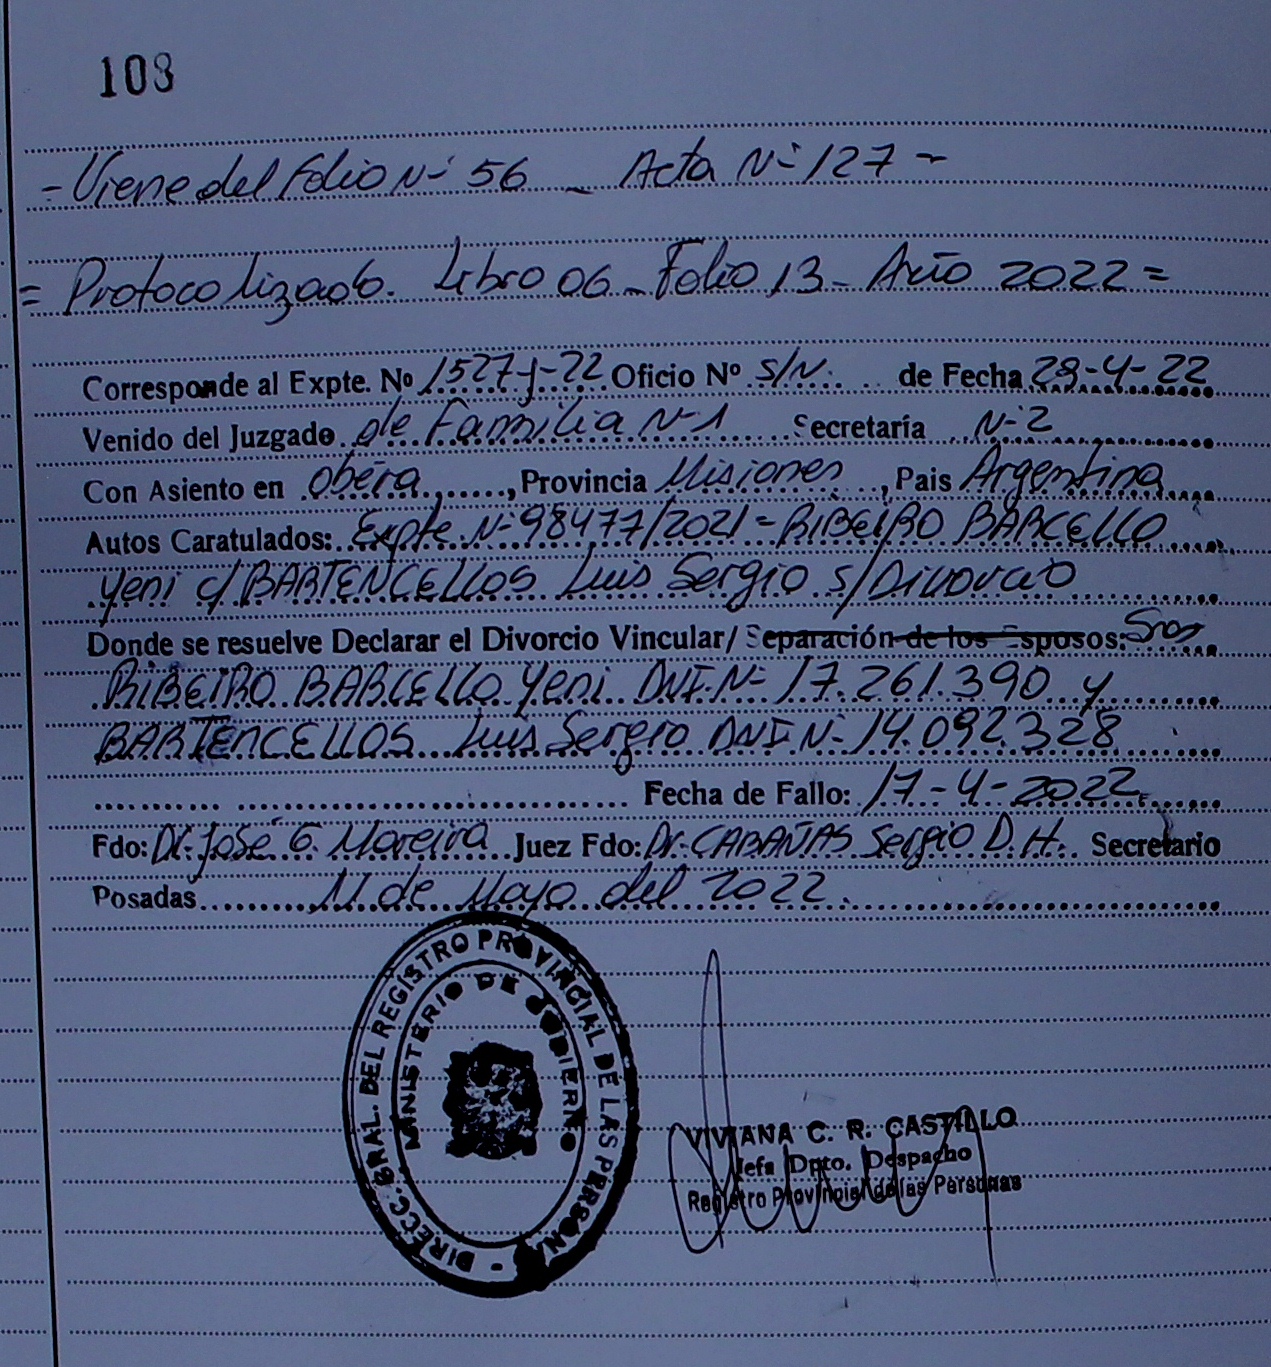 108
- Viene del Folio Nº 56 - Acta Nº 127 -
= Protocolizado. Libro 06 - Folio 13 - Año 2022 =
Corresponde al Expte. Nº 1527-y-22 Oficio Nº S/N. de Fecha 28-4-22
Venido del Juzgado de Familia Nº 1 Secretaría Nº 2
Con Asiento en Oberá, Provincia Misiones, Pais Argentina
Autos Caratulados: Expte Nº 98477/2021 = RIBEIRO BARCELLO
Yeni c/ BARTENCELLOS Luis Sergio s/ Divorcio
Donde se resuelve Declarar el Divorcio Vincular/ Separación de los Esposos: Sres
RIBEIRO BARCELLO Yeni DNI. Nº 17.261.390 y
BARTENCELLOS Luis Sergio DNI Nº 14.092.328
Fecha de Fallo: 17-4-2022
Fdo: Dr. José G. Moreira Juez Fdo: Dr. CABAÑAS Sergio D.H. Secretario
Posadas 11 de Mayo del 2022
DIRECC. GRAL. DEL REGISTRO PROVINCIAL DE LAS PERSONAS
MINISTERIO DE GOBIERNO
VIVIANA C. R. CASTILLO
Jefa Dpto. Despacho
Registro Provincial de las Personas